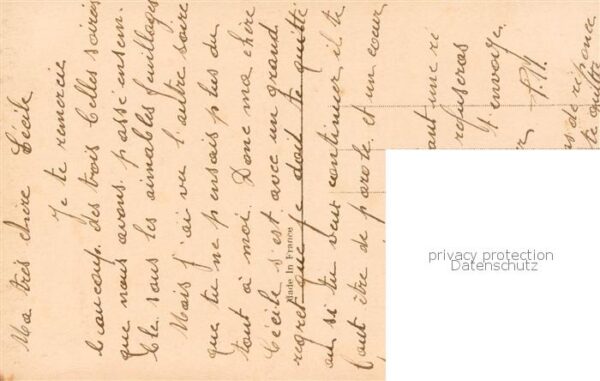 Ma très chère Cécile
Je te remercie
beaucoup des trois belles soirées
que nous avons passé ensem-
ble sous les aimables feuillages
Mais j'ai vu l'autre soire
que tu ne pensais plus du
tout à moi. Donc ma chère
Cécile s'est avec un grand
regret que je dois te quitté
ou si tu veut continuer, il te
faut être de parole, et un coeur
refuseras
j'envoye.
de réponse
te quitte
Made in France
privacy protection
Datenschutz